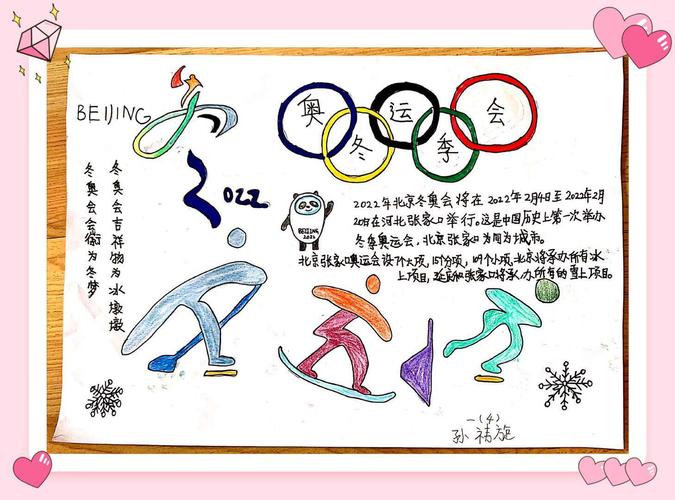 BEIJING
2022
奥 运 会
冬 季
冬奥会吉祥物为冰墩墩
冬奥会会徽为冬梦
BEIJING
2022
2022年北京冬奥会将在2022年2月4日至2022年2月
20日在河北张家口举行。这是中国历史上第一次举办
冬季奥运会，北京张家口为同为城市。
北京张家口奥运会设7个大项，15分项，109个小项，北京将承办所有冰
上项目，延庆和张家口将承办所有的雪上项目。
一(4)
孙